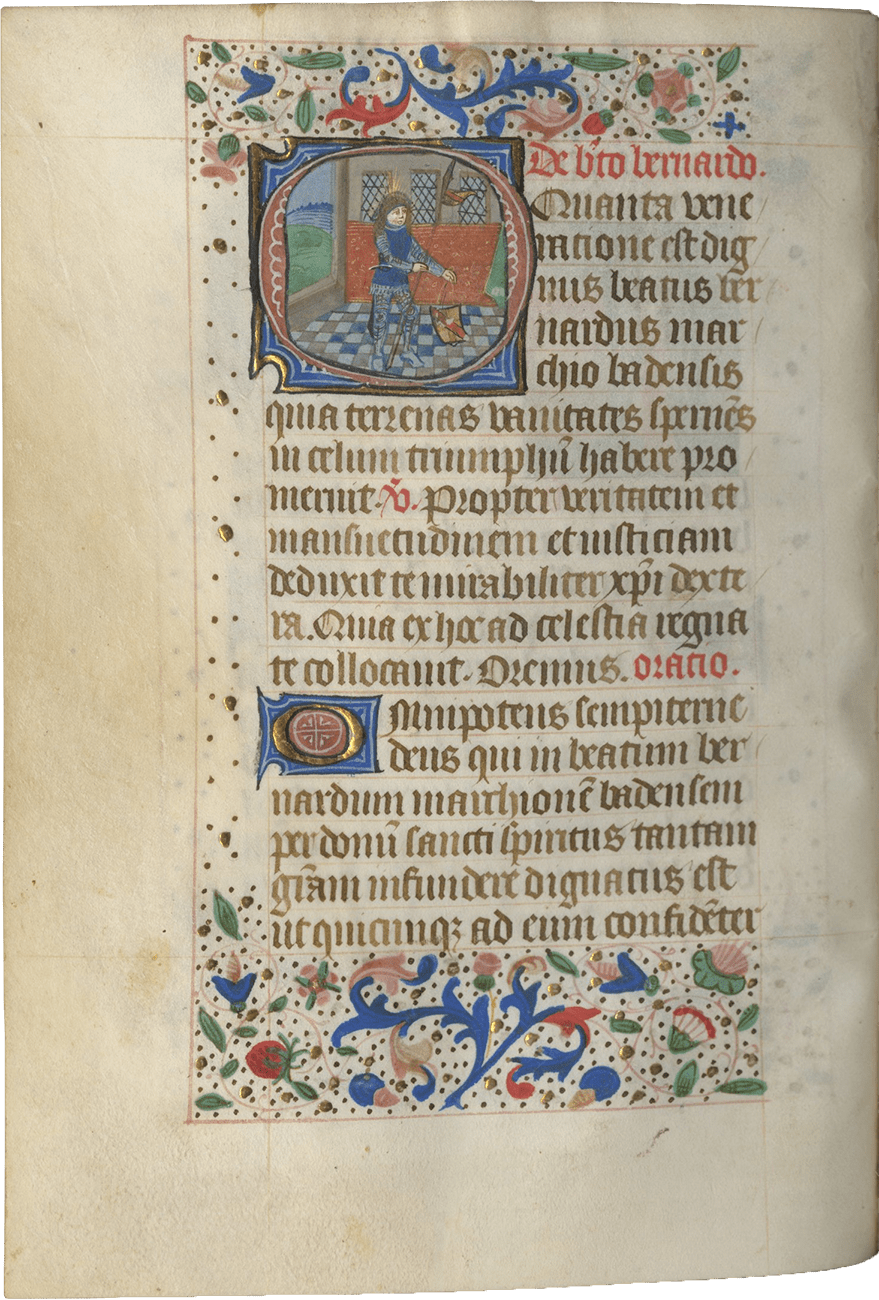 De b̄to bernardo.
Quanta vene
ratione est dig
nus beatus ber
nardus mar
chio badensis
quia terrenas vanitates spernēs
in celum triumphū habere pro
meruit. v̄. Propter veritatem et
mansuetudinem et iusticiam
deduxit te mirabiliter xp̄i dexte
ra. Quia ex hoc ad celestia regna
te collocauit. Oremus. oratio.
Omnipotens sempiterne
deus qui in beatum ber
nardum marchionē badensem
per donū sancti sp̄iritus tantam
gr̄am infundere dignatus est
ut quicunqꝫ ad eum confidēter